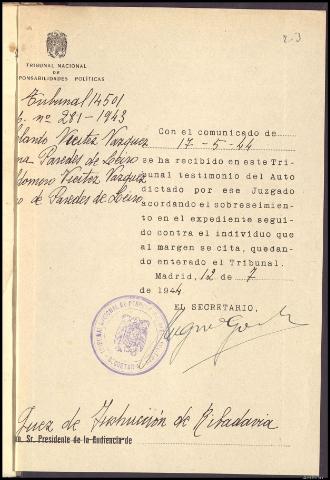 2-3
TRIBUNAL NACIONAL
DE
PONSABILIDADES POLÍTICAS
Tribunal 14501
nº 281-1943
Vieitez Vazquez
Paredes de Leiro
Vieitez Vazquez
de Paredes de Leiro
Con el comunicado de
17-5-44
se ha recibido en este Tri-
bunal testimonio del Auto
dictado por ese Juzgado
acordando el sobreseimien-
to en el expediente segui-
do contra el individuo que
al margen se cita, quedan-
do enterado el Tribunal.
Madrid, 12 de 7
de 1944
EL SECRETARIO,
Juez de Instrucción de Ribadavia
Sr. Presidente de la Audiencia de